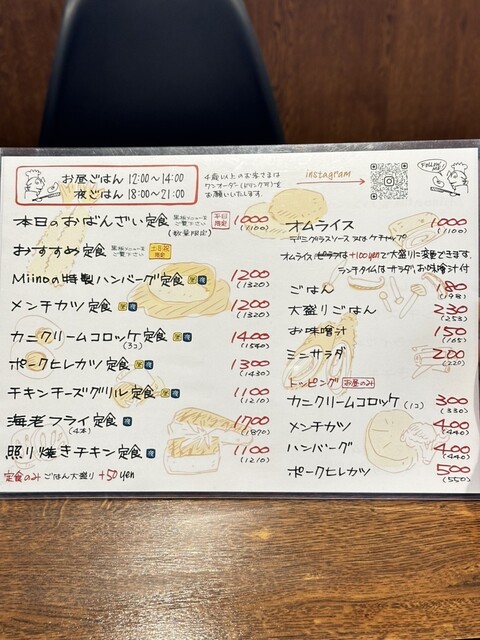 お昼ごはん 12:00〜14:00
夜ごはん 18:00〜21:00
4歳以上のお客さまは
ワンオーダー(ドリンク可)を
お願いいたします。
instagram
FOLLOW ME!
本日のおばんざい定食 黒板メニューを ご覧下さい 平日限定 1000
(数量限定) (1100)
おすすめ定食 黒板メニューを ご覧下さい 土日祝限定
Miinoの特製ハンバーグ定食 昼 夜 1200
(1320)
メンチカツ定食 昼 夜 1200
(1320)
カニクリームコロッケ定食 昼 夜 1400
(3コ) (1540)
ポークヒレカツ定食 昼 夜 1300
(1430)
チキンチーズグリル定食 昼 夜 1100
(1210)
海老フライ定食 夜 1700
(4本) (1870)
照り焼きチキン定食 夜 1100
(1210)
定食のみ ごはん大盛り +50yen
オムライス 1000
デミグラスソース 又は ケチャップ (1100)
+100yenで大盛りに変更できます。
ランチタイムはサラダ、お味噌汁付
ごはん 180
(198)
大盛りごはん 230
(253)
お味噌汁 150
(165)
ミニサラダ 200
(220)
トッピング お昼のみ
カニクリームコロッケ (1コ) 300
(330)
メンチカツ 400
(440)
ハンバーグ 400
(440)
ポークヒレカツ 500
(550)